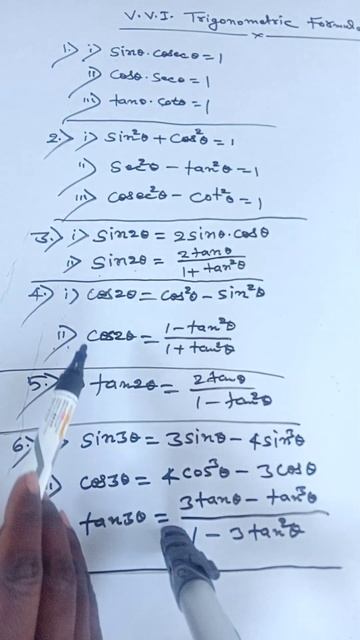 V.V.I. Trigonometric Formula
1.> i> sinθ.cosecθ=1
ii> cosθ.secθ=1
iii> tanθ.cotθ=1
2.> i> sin²θ+cos²θ=1
ii> sec²θ-tan²θ=1
iii> cosec²θ-cot²θ=1
3.> i> sin2θ=2sinθ.cosθ
ii> sin2θ=2tanθ/1+tan²θ
4.> i> cos2θ=cos²θ-sin²θ
ii> cos2θ=1-tan²θ/1+tan²θ
5.> tan2θ=2tanθ/1-tan²θ
6.> sin3θ=3sinθ-4sin³θ
cos3θ=4cos³θ-3cosθ
tan3θ=3tanθ-tan³θ/1-3tan²θ